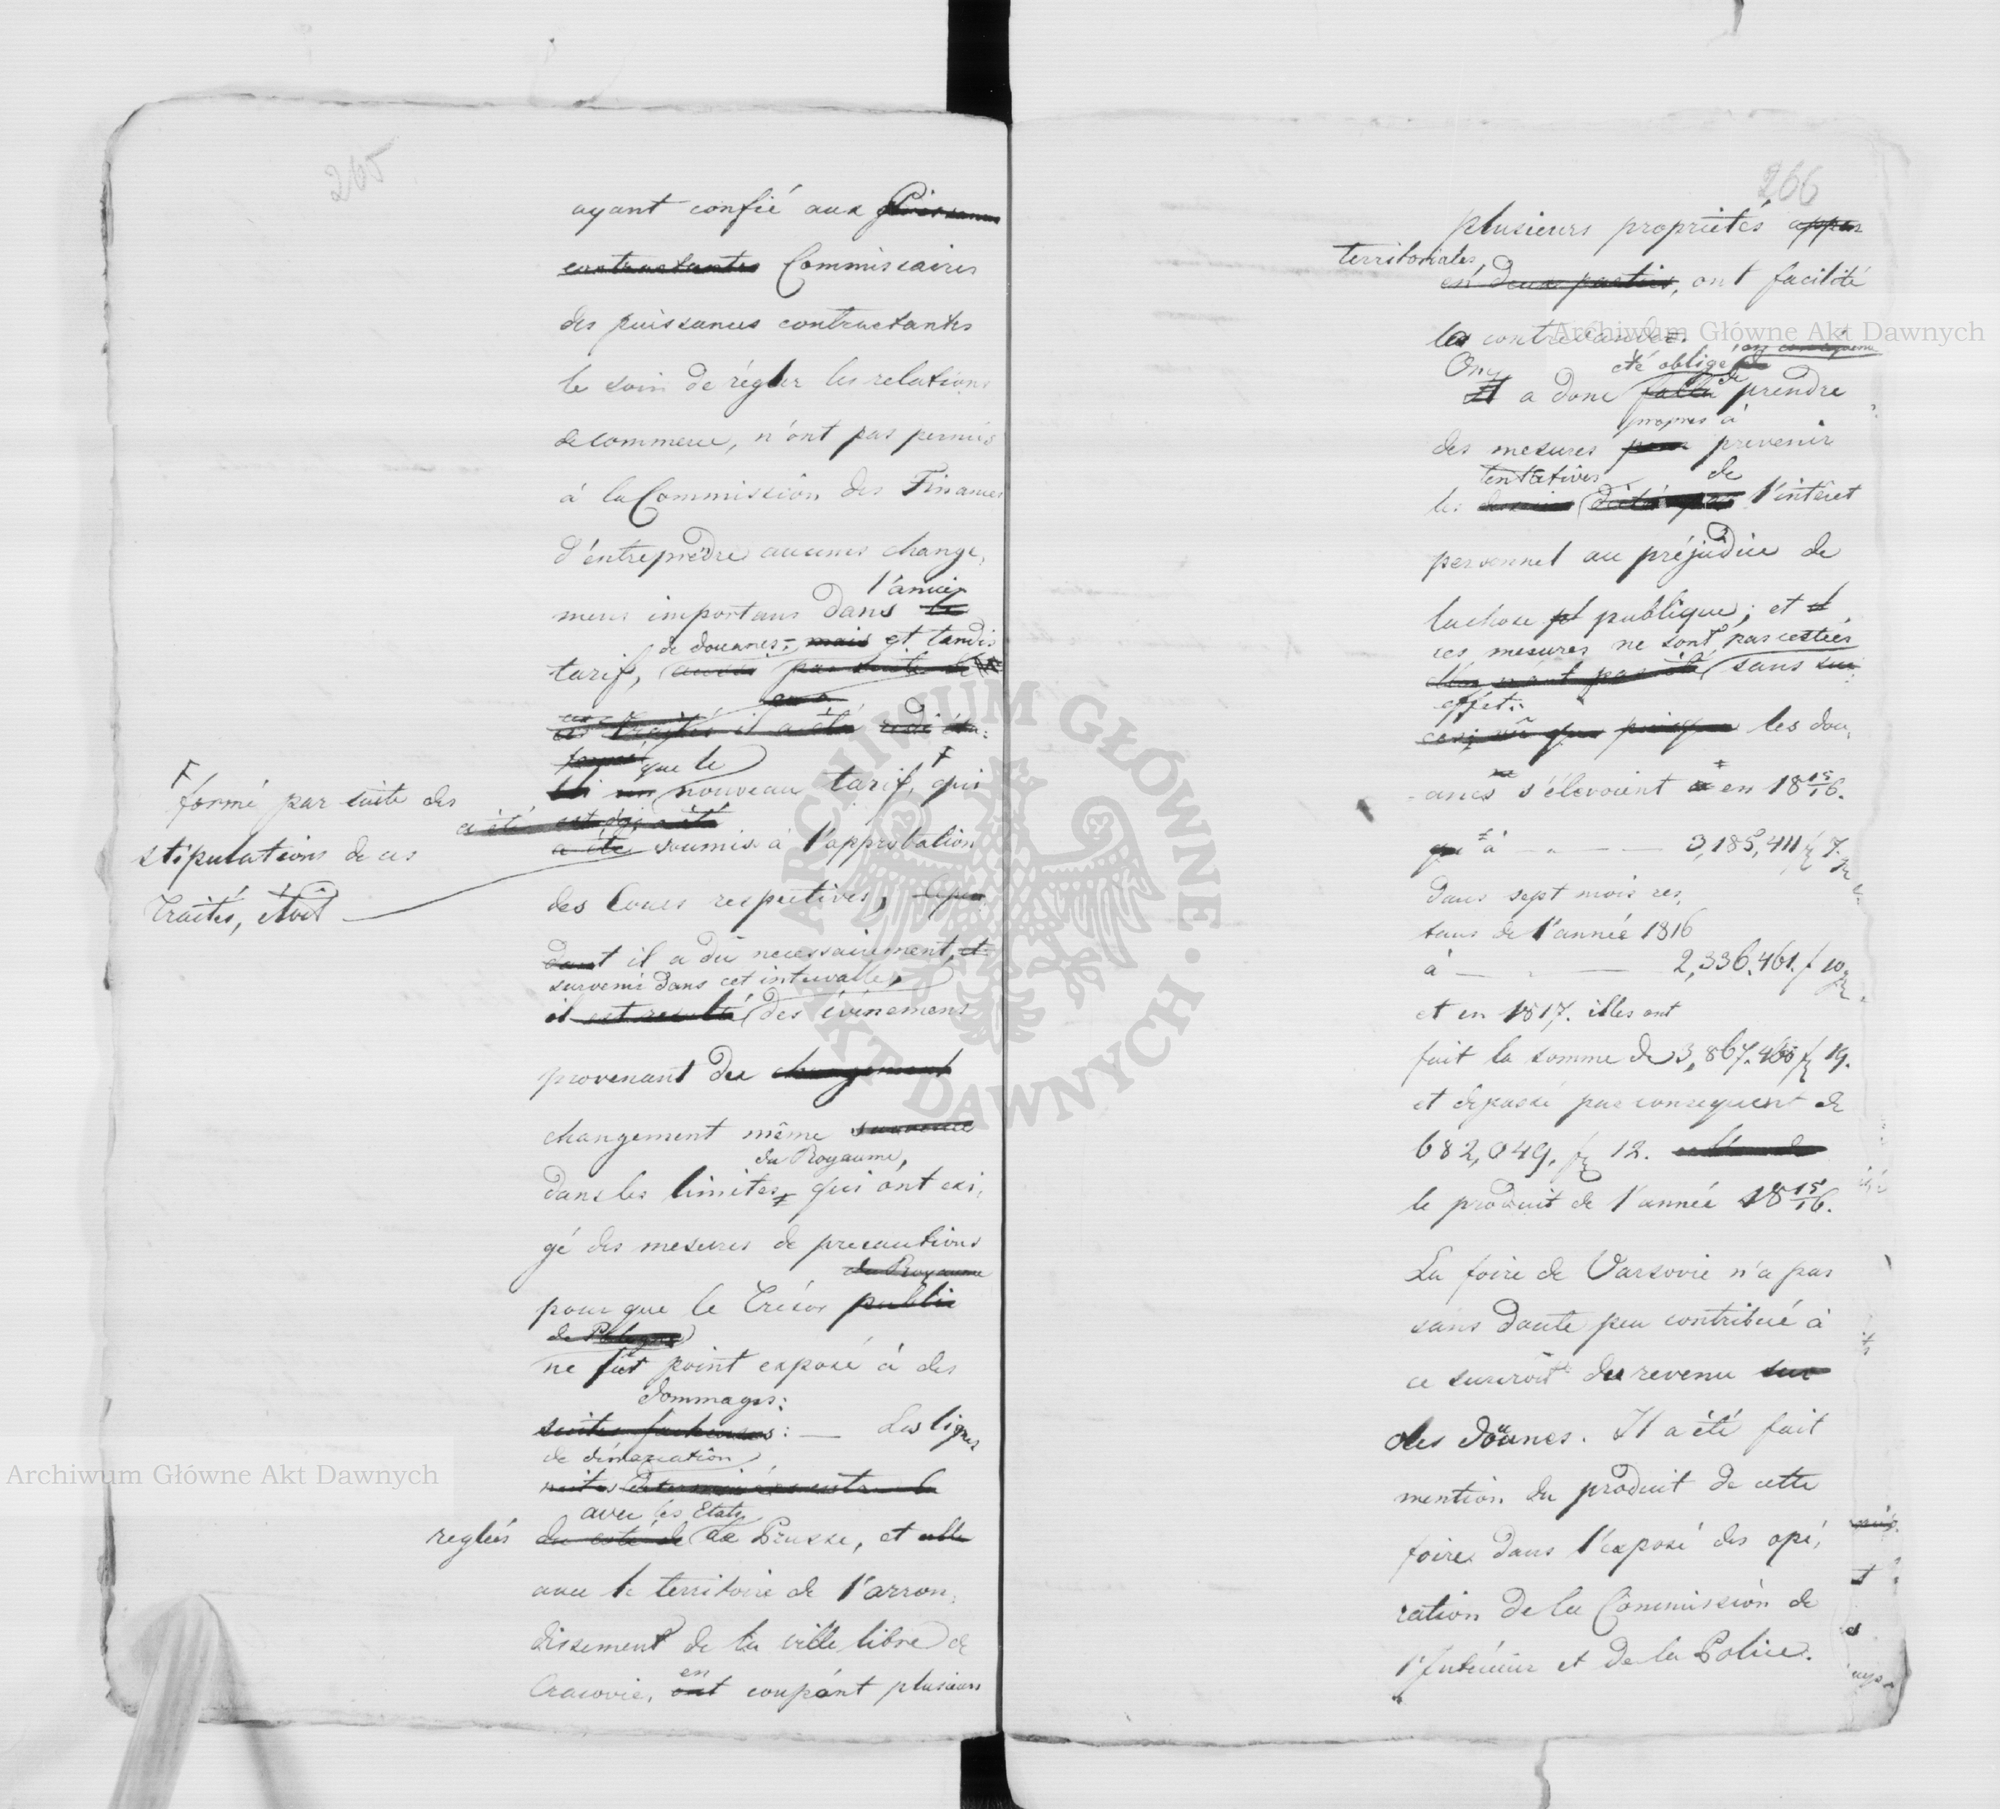 265
ayant confié aux
contractantes Commissaires
des puissances contractantes
le soin de régler les relations
de commerce, n'ont pas permis
à la Commission des Finances
d'entreprendre aucuns change,
l'ancien
mens importans dans le
de douanes; mais et tandis
tarif, par suite de
ces traités il a été
que le
un nouveau tarif, F qui
F formé par suite des
stipulations de ces
traités, étoit
a été
a été soumis à l'approbation
des Cours respectives, Cepen
dant il a dû necessairement, et
survenir dans cet intervalle,
il est resulté des évènemens
provenant du changement
changement même survenu
du Royaume,
dans les limites, qui ont exi,
gé des mesures de precautions
du Royaume
pour que le Trésor public
de Pologne
ne fut point exposé à des
dommages:
suites facheuses: — Les lignes
de démarcation
avec les Etats
reglées du coté de de Prusse, et
avec le territoire de l'arron,
dissement de la ville libre de
en
Cracovie, ont coupant plusieurs
266
plusieurs propriétés appar
territoriales,
en deux parties, ont facilité
la contrebande.
On été obligé en consequence
Il a donc fallu de prendre
propres à
des mesures pour prevenir
tentatives de
les l'intêret
personnel au préjudice de
la chose publique; et
ces mesures ne sont pas restées
sans
effet:
les dou,
anes s'élevoient en 18 15/16.
à — — — 3,185,411 f 7.
dans sept mois res,
tans de l'année 1816
à — — — 2,336.461. f 10
et en 1817. elles ont
fait la somme de 3,867.460 f 19.
et depassé par consequent de
682,049. f 12.
le produit de l'année 18 15/16.
La foire de Varsovie n'a pas
sans doute peu contribué à
ce surcroit du revenu sur
des douanes. Il a été fait
mention du produit de cette
foire dans l'exposé des opé,
ration de la Commission de
l'Intérieur et de la Police.
Archiwum Główne Akt Dawnych
Archiwum Główne Akt Dawnych
ARCHIWUM GŁÓWNE · AKT DAWNYCH ·